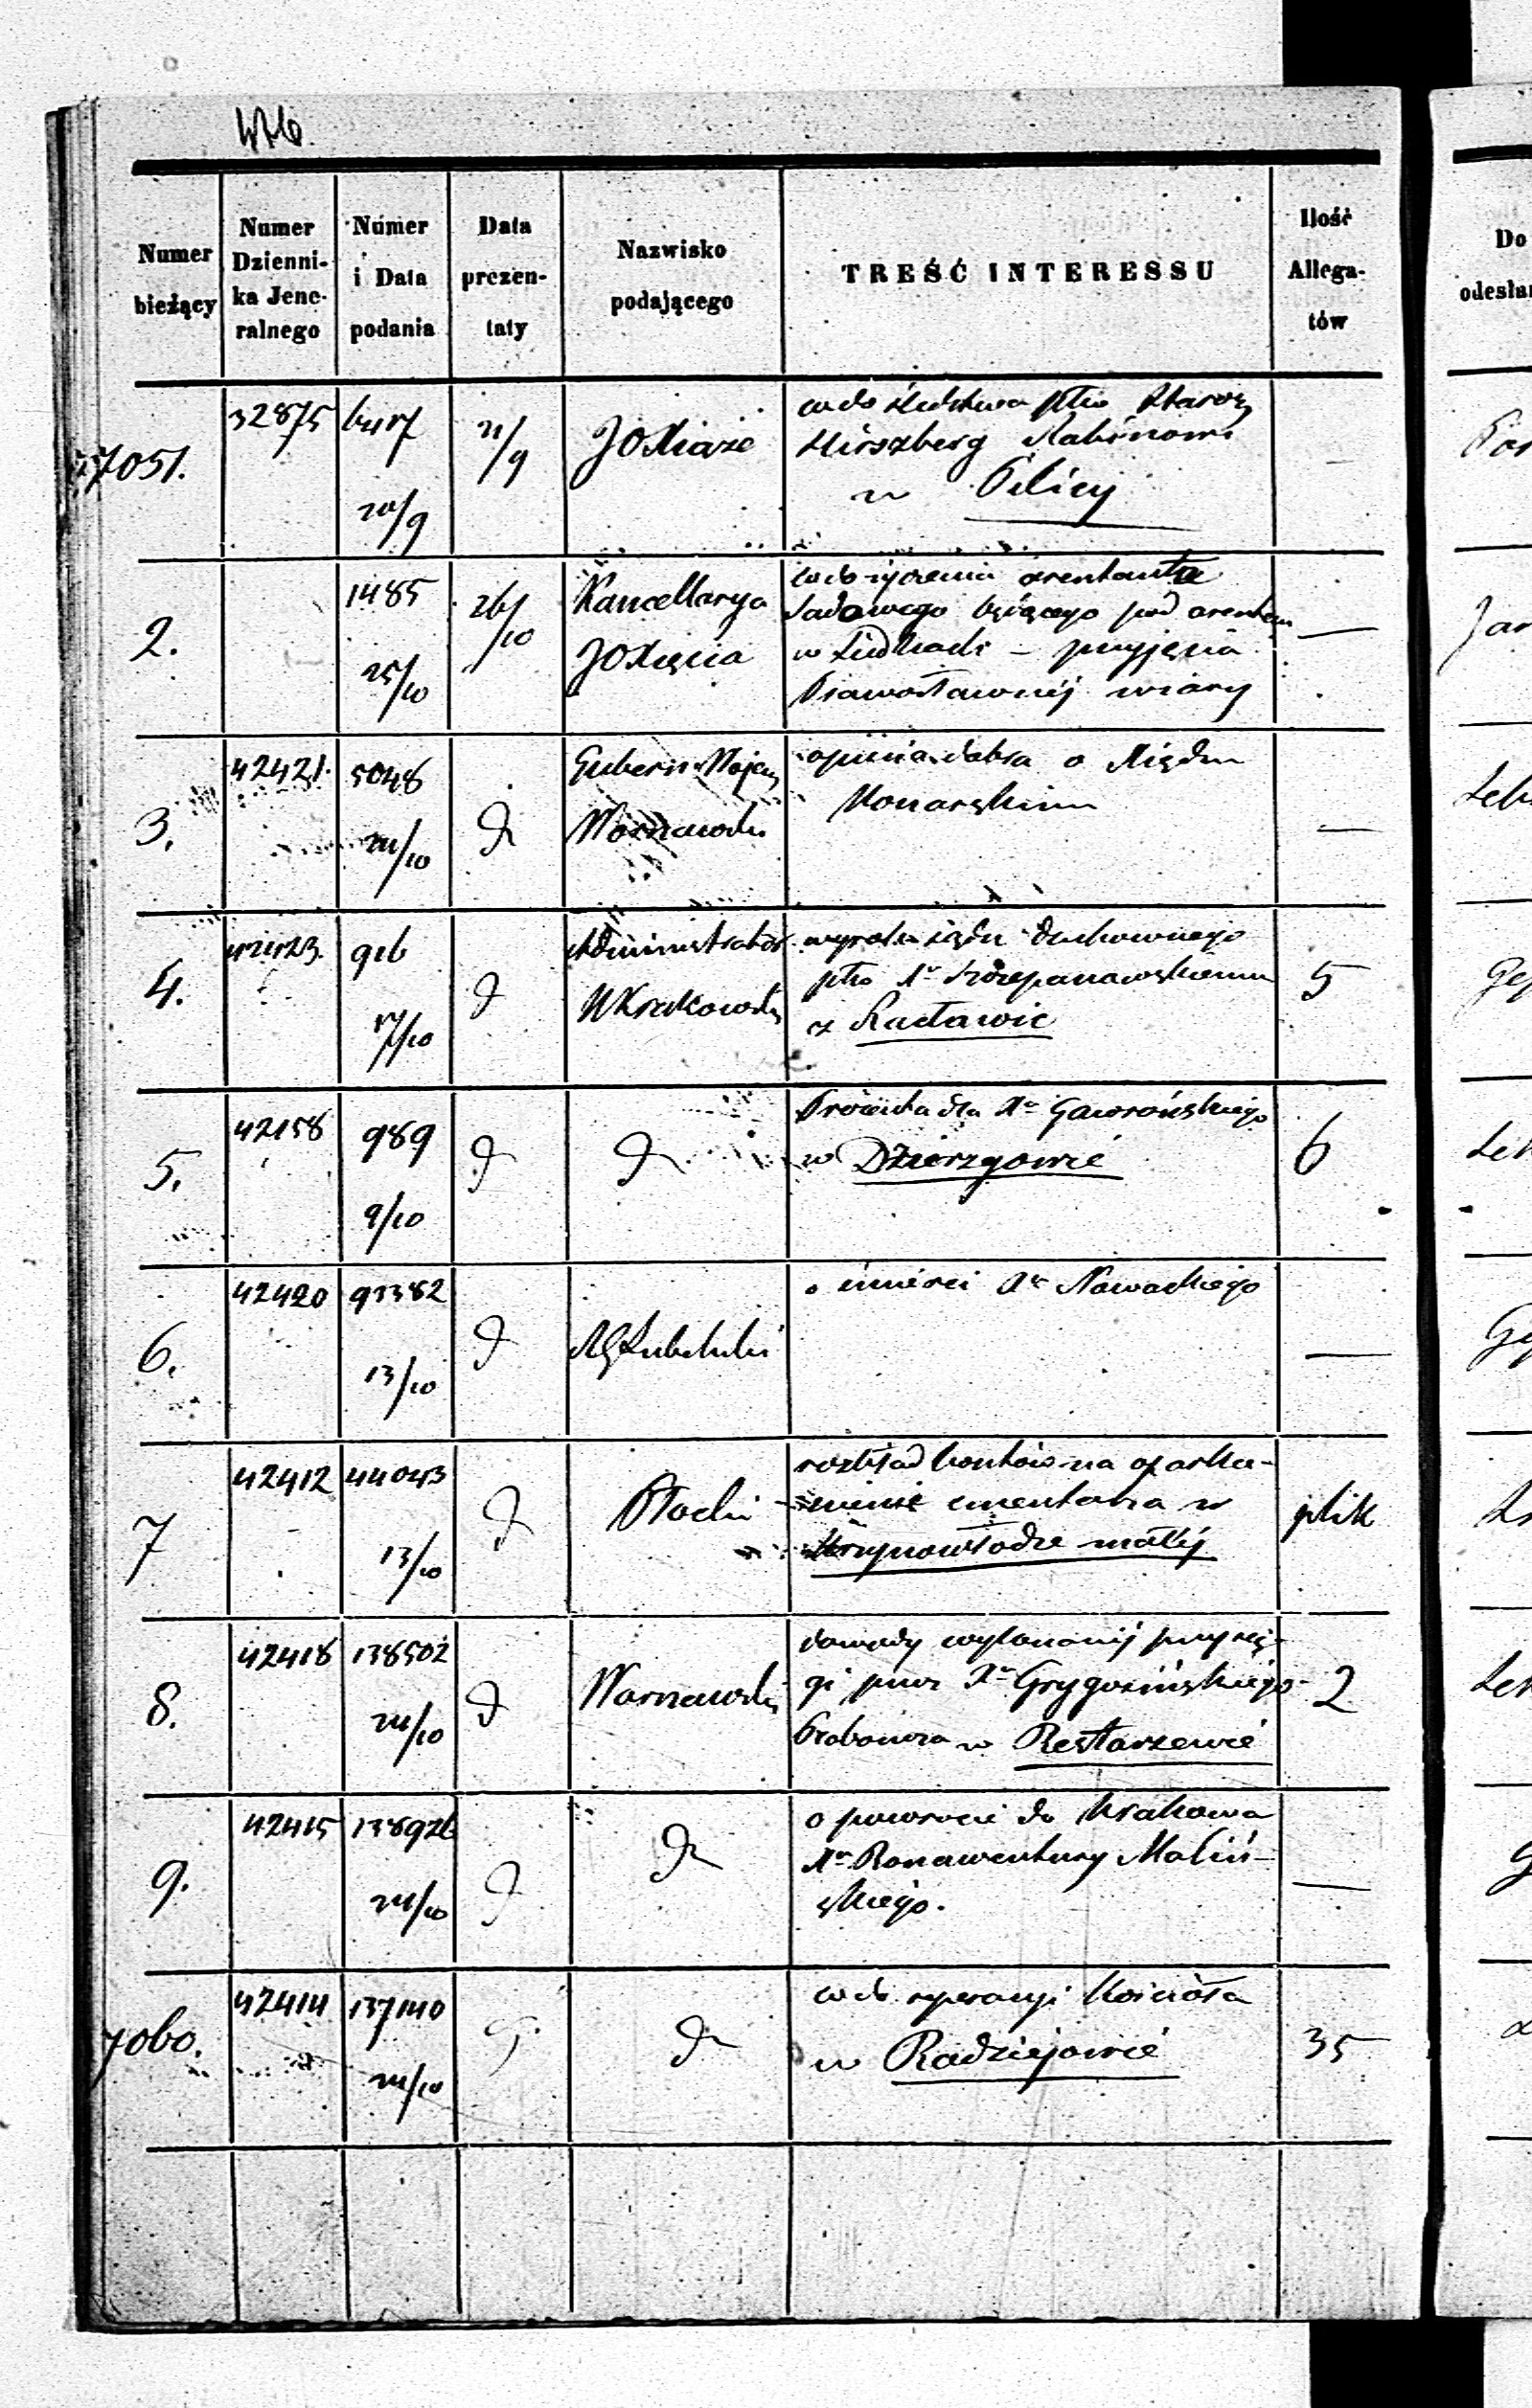 476.
Numer bieżący
Numer Dzienni-ka Jene-ralnego
Numer i Data podania
Data prezen-taty
Nazwisko podającego
TREŚĆ INTERESSU
Ilość Allega-tów
Do odesłan
7051. 32875 20/9 21/9 JO Xiąże
co do śledztwa
Hirszberg Rabinowi
w Pilicy
2. 1485 25/10 26/10 Kancellarya JO Xięcia —
co do życzenia aresztanta
Sądowego będącego pod aresztem
w przyjęcia
Prawosławnéj wiary
3. 42421. 5048 24/10 d Gubern. Wojen. Warszawski —
opinia dobra o Xiędzu
Konarskim
4. 42423. 916 17/10 d Administrator Krakowski 5
wyrok sądu duchownego
ptko Xu Szczepanowskiemu
z Racławic
5. 42158 989 9/10 d d 6
Prezenta dla Xa Gaworońskiego
w Dzierzgowie
6. 42420 93382 13/10 d RG Lubelski —
o śmierci Xa Nowackiego
7 42412 44043 13/10 d Płocki plik
rozkład kosztów na oparka-
nienie cmentarza w
Krzynowłodze małéj
8. 42418 138502 24/10 d Warszawski 2
dowody wykonanéj przysię-
gi przez Xa Grygosińskiego
Proboszcza w Restarzewie
9. 42415 138926 24/10 d d —
o powrocie do Krakowa
Xa Bonawentury Maliń-
skiego.
7060. 42414 137140 24/10 d d 35
co do reperacyi Kościoła
w Radziejowie